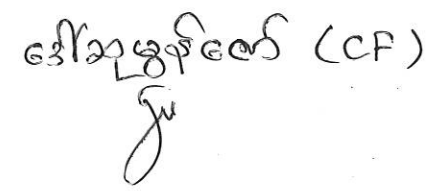 ဒေါ်သူမွန်ဇော် (CF)